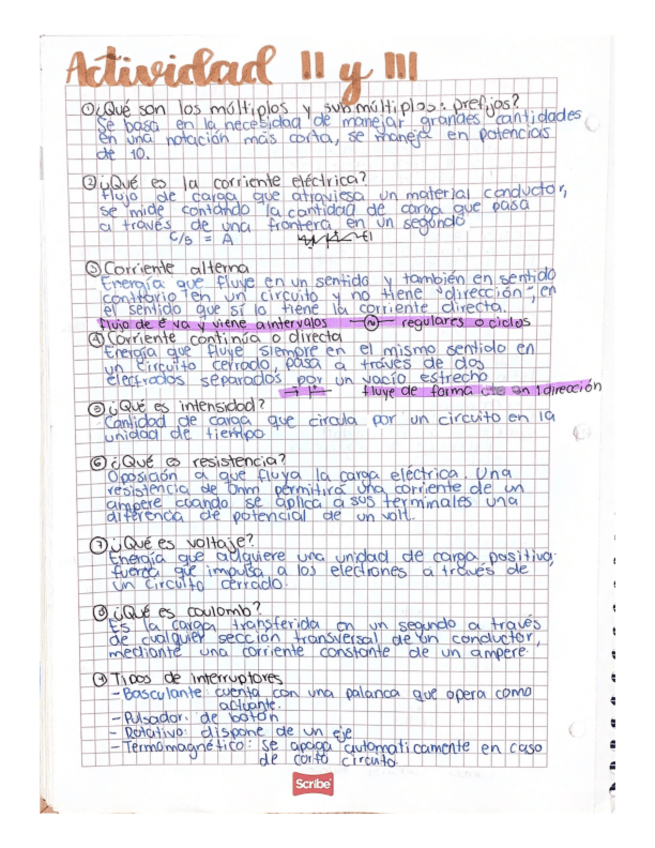 Actividad II y III
① ¿Qué son los múltiplos y submúltiplos: prefijos?
Se basa en la necesidad de manejar grandes cantidades
en una notación más corta, se maneja en potencias
de 10.
② ¿Qué es la corriente eléctrica?
Flujo de carga que atraviesa un material conductor,
se mide contando la cantidad de carga que pasa
a través de una frontera en un segundo
C/s = A
③ Corriente alterna
Energía que fluye en un sentido y también en sentido
contrario en un circuito y no tiene "dirección", en
el sentido que si lo tiene la corriente directa.
flujo de é va y viene a intervalos regulares o ciclos
④ Corriente continua o directa
Energía que fluye siempre en el mismo sentido en
un circuito cerrado, pasa a través de dos
electrodos separados por un vacío estrecho
fluye de forma cte en 1 dirección
⑤ ¿Qué es intensidad?
Cantidad de carga que circula por un circuito en la
unidad de tiempo
⑥ ¿Qué es resistencia?
Oposición a que fluya la carga eléctrica. Una
resistencia de Ohm permitirá una corriente de un
ampere cuando se aplica a sus terminales una
diferencia de potencial de un volt.
⑦ ¿Qué es voltaje?
Energía que adquiere una unidad de carga positiva;
fuerza que impulsa a los electrones a través de
un circuito cerrado.
⑧ ¿Qué es coulomb?
Es la carga transferida en un segundo a través
de cualquier sección transversal de un conductor,
mediante una corriente constante de un ampere
⑨ Tipos de interruptores
- Basculante: cuenta con una palanca que opera como
actuante.
- Pulsador: de botón
- Rotativo: dispone de un eje
- Termomagnético: se apaga automaticamente en caso
de corto circuito
Scribe